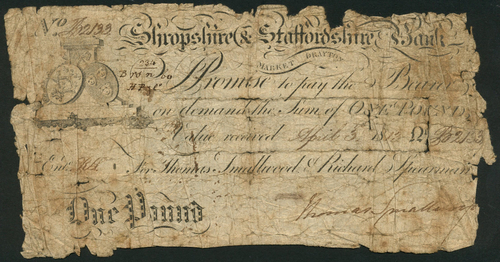 No B2133
Shropshire & Staffordshire Bank
MARKET DRAYTON
Promise to pay the Bearer
on demand the Sum of ONE POUND
Value received April 3, 1813 £ B2133
Entd
For Thomas Smallwood & Richard Spearman
One Pound
Thomas Smallwood